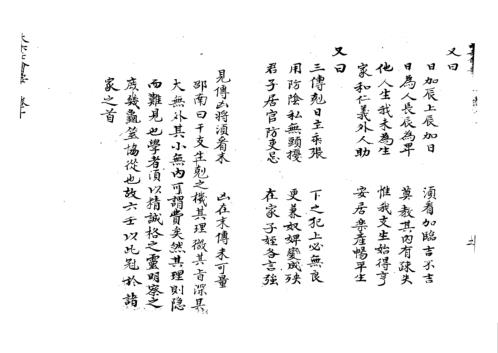 又曰
日加辰上辰加日　須看加臨言不言
日為人長辰為卑　莫教其内有疎失
他人生我未為生　惟我支生始得亨
家和仁義外人助　安居樂產暢平生
又曰
三傳剋日主乘張　下之犯上必無良
用防陰私無顕擾　更兼奴婢變成殃
君子居官防更忌　在家子姪各言強
見傳凶將須看末　凶在末傳未可量
邵南曰干支生剋之機其理微其旨深其
大無外其小無内可謂費矣然其理則隐
而難見也學者須以精誠格之靈明察之
庶幾龜筮協從也故六壬以此冠於諸
家之首